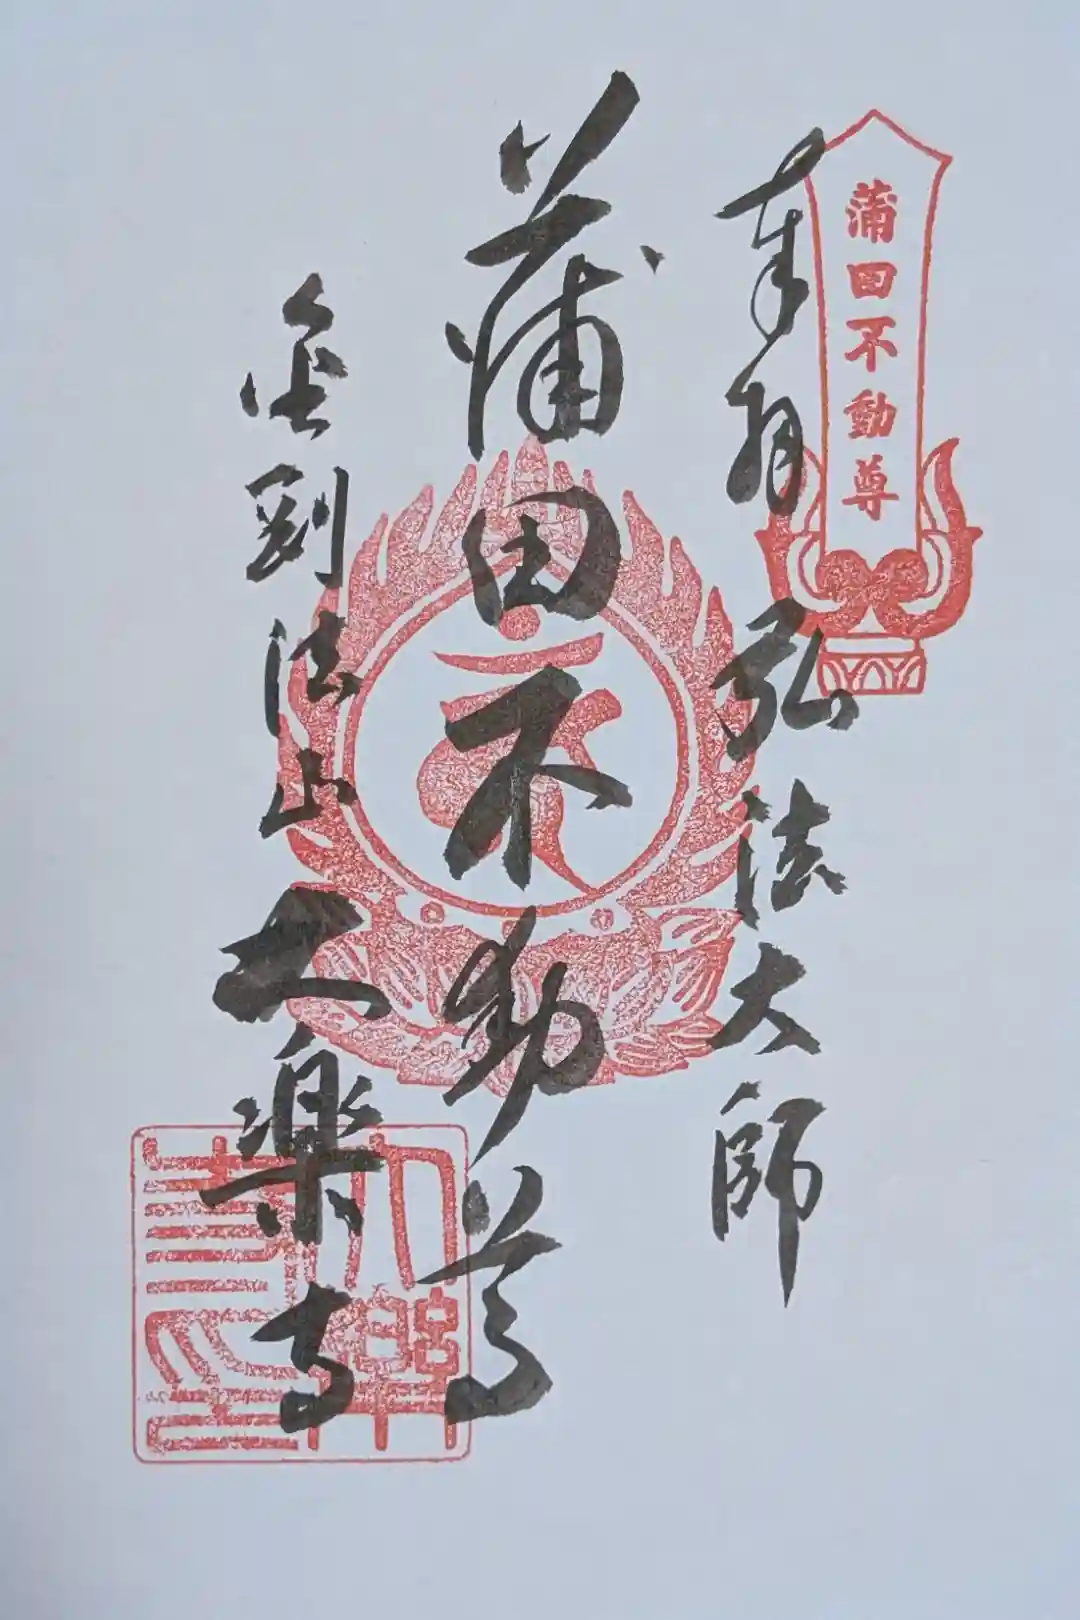 蒲田不動尊
奉拝 弘法大師
蒲田不動尊
金剛法山 六樂寺